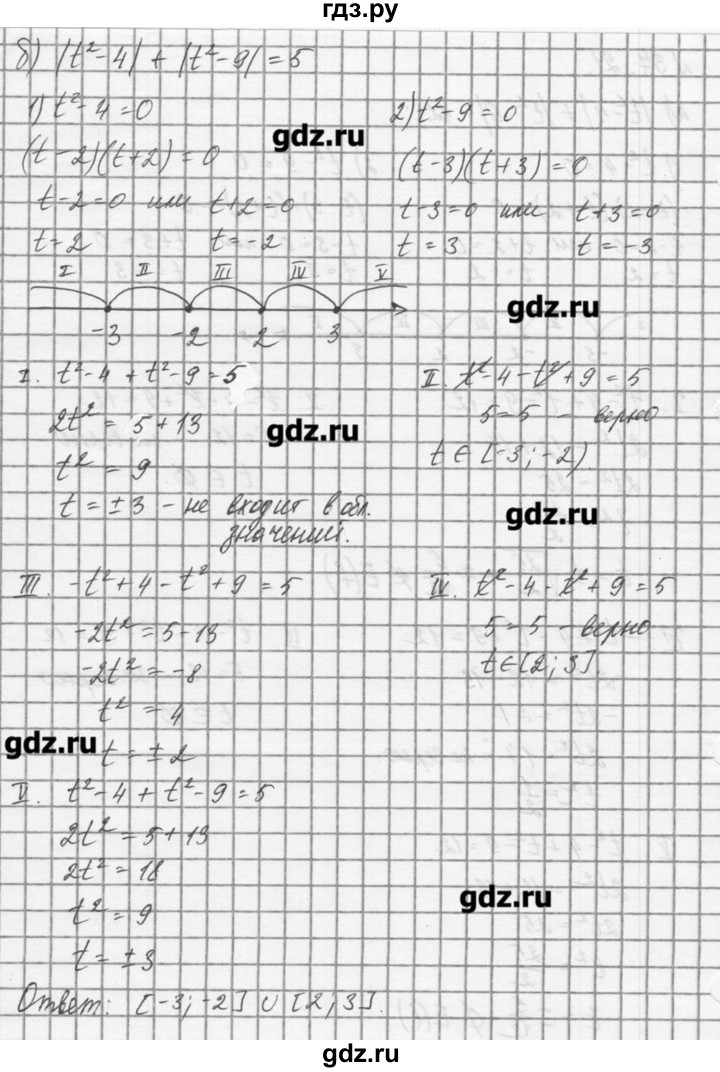 гдз.ру
б) |t² - 4| + |t² - 9| = 5
1) t² - 4 = 0
(t - 2)(t + 2) = 0
t - 2 = 0 или t + 2 = 0
t = 2 t = -2
2) t² - 9 = 0
(t - 3)(t + 3) = 0
t - 3 = 0 или t + 3 = 0
t = 3 t = -3
gdz.ru
I II III IV V
-3 -2 2 3
gdz.ru
I. t² - 4 + t² - 9 = 5
2t² = 5 + 13
t² = 9
t = ± 3 - не входит в обл.
значений.
gdz.ru
II. t² - 4 - t² + 9 = 5
5 = 5 - верно
t ∈ [-3; -2)
gdz.ru
III. -t² + 4 - t² + 9 = 5
-2t² = 5 - 13
-2t² = -8
t² = 4
t = ± 2
IV. t² - 4 - t² + 9 = 5
5 = 5 - верно
t ∈ [2; 3]
gdz.ru
V. t² - 4 + t² - 9 = 5
2t² = 5 + 13
2t² = 18
t² = 9
t = ± 3
gdz.ru
Ответ: [-3; -2] ∪ [2; 3].
gdz.ru